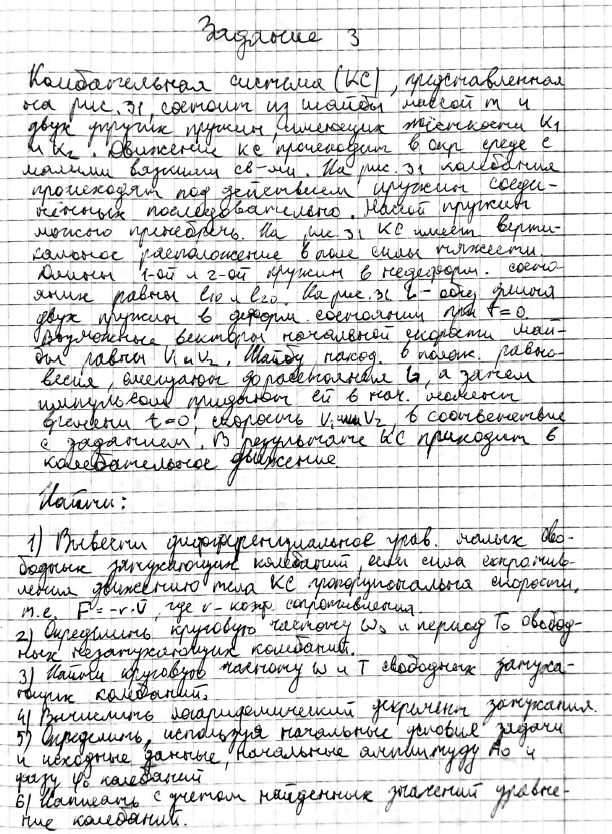 Задание 3
Колебательная система (КС), представленная
на рис. 31, состоит из шайбы массой m и
двух упругих пружин, имеющих жёсткости K1
и K2. Движение КС происходит в окр среде с
малыми вязкими св-ми. На рис. 31 колебания
происходят под действием пружин соеди-
нённых последовательно. Массой пружин
можно пренебречь. На рис. 31 КС имеет верти-
кальное расположение в поле силы тяжести.
Длины 1-ой и 2-ой пружин в недеформ. состо-
яник равны l10 и l20. На рис. 31 L - общ. длина
двух пружин в деформ. состоянии при t=0
Возможные векторы начальной скорости шай-
бы равны V1 и V2. Шайбу наход. в полож. равно-
весия, смещают до расстояния L, а затем
импульсом придают ей в нач. момент
времени t=0, скорость V1 или V2, в соответствие
с заданием. В результате КС приходит в
колебательное движение.
Найти:
1) Вывести дифференциальное урав. малых сво-
бодных затухающих колебаний, если сила сопротив-
ления движению тела КС пропорциональна скорости,
т.е. F = -r·v, где r - коэф. сопротивления.
2) Определить круговую частоту ω0 и период T0 свобод-
ных незатухающих колебаний.
3) Найти круговую частоту ω и T свободных затуха-
ющих колебаний.
4) Вычислить логарифмический декремент затухания.
5) Определить, используя начальные условия задачи
и исходные данные, начальные амплитуду A0 и
фазу φ0 колебаний
6) Написать с учетом найденных значений уравне-
ние колебаний.